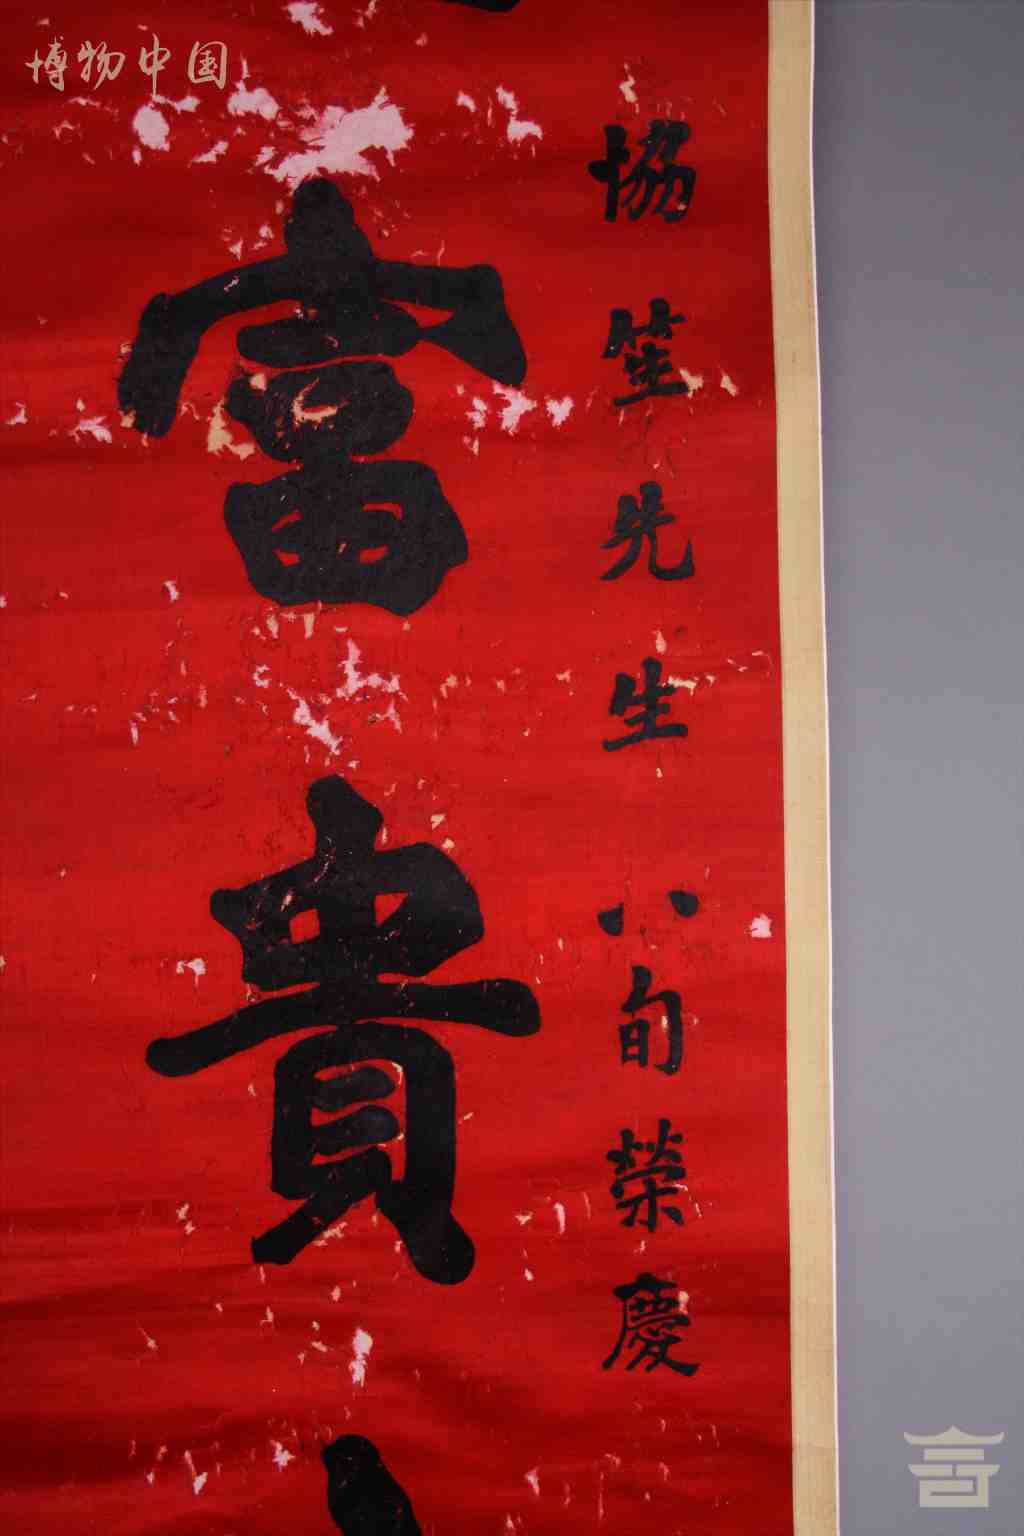 博物中国
協笙先生八旬榮慶
富貴